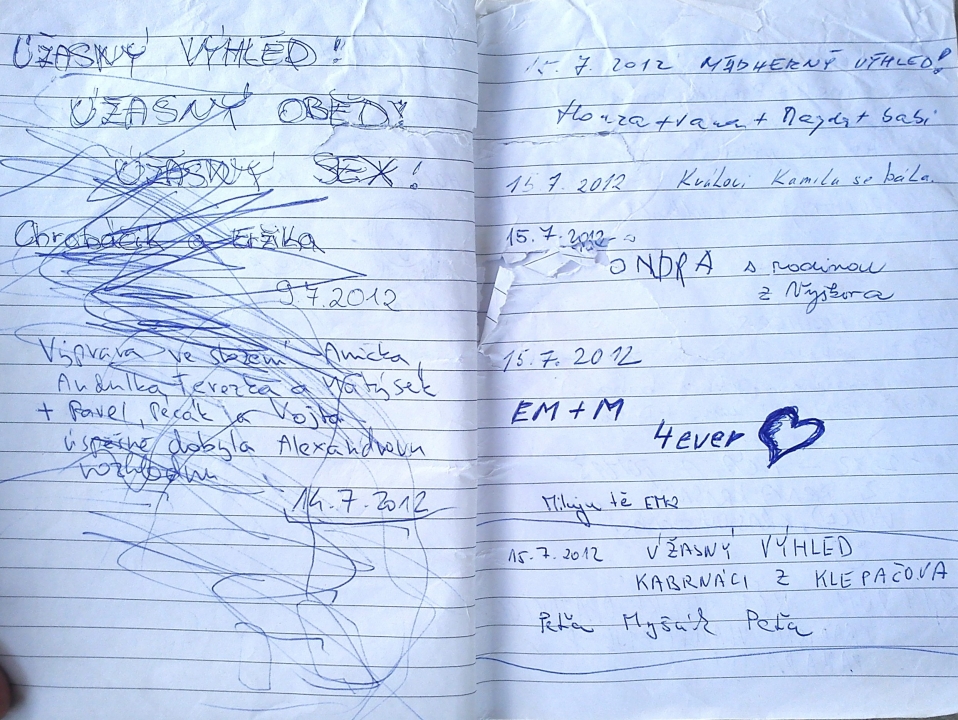 ÚŽASNÝ VÝHLED!
ÚŽASNÝ OBĚD!
ÚŽASNÝ SEX!
Chrobáčik a Eržika
9.7.2012
Výprava ve složení Anička,
Andulka, Terezka a Matýsek
+ Pavel, Pecák a Vojta
úspěšně dobyla Alexandrovu
rozhlednu
14.7.2012
15.7.2012 NÁDHERNÝ VÝHLED!
Honza + + Magda + babi
15.7.2012 Královi Kamila se bála.
15.7.2012
ONDRA s rodinou
z Vyškova
15.7.2012
EM + M
4ever
Miluju tě
15.7.2012 ÚŽASNÝ VÝHLED
KABRŇÁCI Z KLEPAČOVA
Peťa Myšák Peťa